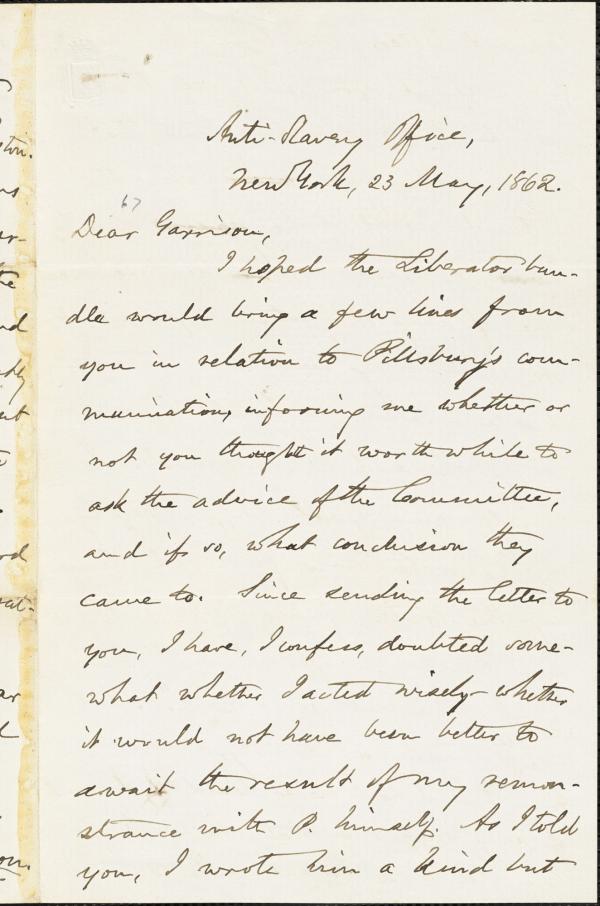 Anti-Slavery Office,
New York, 23 May, 1862.
67
Dear Garrison,
I hoped the Liberator bun-
dle would bring a few lines from
you in relation to Pillsbury's com-
munication, informing me whether or
not you thought it worth while to
ask the advice of the Committee,
and if so, what conclusion they
came to. Since sending the letter to
you, I have, I confess, doubted some-
what whether I acted wisely—whether
it would not have been better to
await the result of my remon-
strance with P. himself. As I told
you, I wrote him a kind but